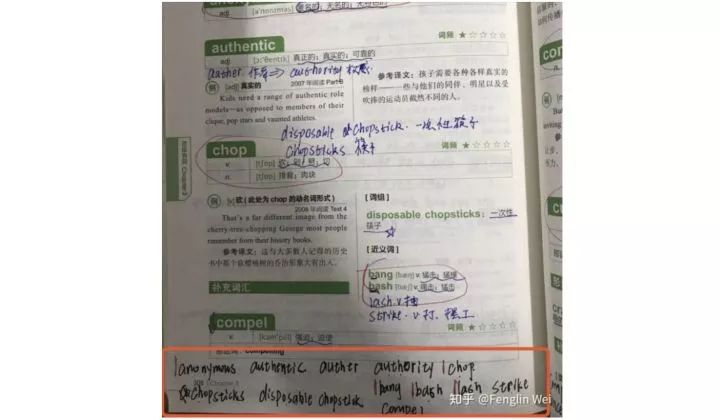 adj [əˈnɒnɪməs]
authentic
词频 ★☆☆☆☆
adj [ɔːˈθentɪk] 真正的；真实的；可靠的
auther 作者 => authority 权威
例 [adj] 真实的
2007年阅读 Part B
Kids need a range of authentic role
models—as opposed to members of their
clique, pop stars and vaunted athletes.
参考译文：孩子需要各种各样真实的
榜样——一些与他们的同伴、明星以及受
吹捧的运动员截然不同的人。
disposable chopstick. 一次性筷子
chopsticks 筷子
chop
词频 ★☆☆☆☆
v. [tʃɒp] 砍；剁；劈；切
n. [tʃɒp] 排骨；肉块
例 [v] 砍（此处为 chop 的动名词形式）
2008年阅读 Text 4
That's a far different image from the
cherry-tree-chopping George most people
remember from their history books.
参考译文：这与大多数人记得的历史
书中那个砍樱桃树的乔治形象大有出入。
[词组]
disposable chopsticks：一次性
筷子
[近义词]
bang [bæŋ] v. 猛击；猛撞
bash [bæʃ] v. 痛击；猛击
lash. v. 抽
strike. v. 打、罢工
补充词汇
compel
词频 ★☆☆☆☆
v. [kəmˈpel] 强迫；迫使
compelling
anonymous authentic auther authority chop
chopsticks disposable chopstick bang bash lash strike
compel
Chapter 3
知乎 @Fenglin Wei